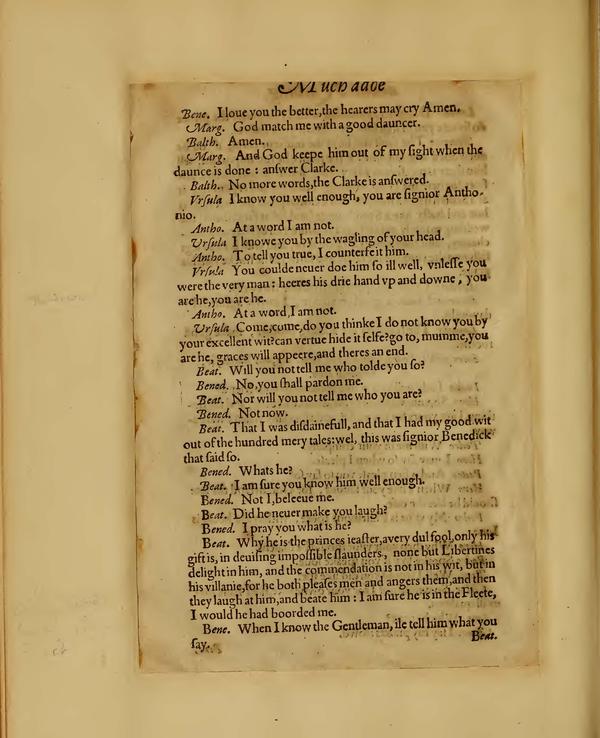 Much adoe
Bene. I loue you the better,the hearers may cry Amen.
Marg. God match me with a good dauncer.
Balth. Amen.
Marg. And God keepe him out of my ſight when the
daunce is done : anſwer Clarke.
Balth. No more words,the Clarke is anſwered.
Vrſula I know you well enough, you are ſignior Antho-
nio.
Antho. At a word I am not.
Vrſula I knowe you by the wagling of your head.
Antho. To tell you true, I counterfeit him.
Vrſula You coulde neuer doe him ſo ill well, vnleſſe you
were the very man : heeres his drie hand vp and downe , you
are he,you are he.
Antho. At a word I am not.
Vrſula Come,come,do you thinke I do not know you by
your excellent wit?can vertue hide it ſelfe?go to, mumme,you
are he, graces will appeere,and theres an end.
Beat. Will you not tell me who tolde you ſo?
Bened. No,you ſhall pardon me.
Beat. Nor will you not tell me who you are?
Bened. Not now.
Beat. That I was diſdainefull, and that I had my good wit
out of the hundred mery tales:wel, this was ſignior Benedick
that ſaid ſo.
Bened. Whats he?
Beat. I am ſure you know him well enough.
Bened. Not I,beleeue me.
Beat. Did he neuer make you laugh?
Bened. I pray you what is he?
Beat. Why he is the princes ieaſter,a very dul fool,only his
gift is, in deuiſing impoſſible ſlaunders , none but Libertines
delight in him, and the commendation is not in his wit, but in
his villanie,for he both pleaſes men and angers them,and then
they laugh at him,and beate him : I am ſure he is in the Fleete,
I would he had boorded me.
Bene. When I know the Gentleman, ile tell him what you
ſay.
Beat.